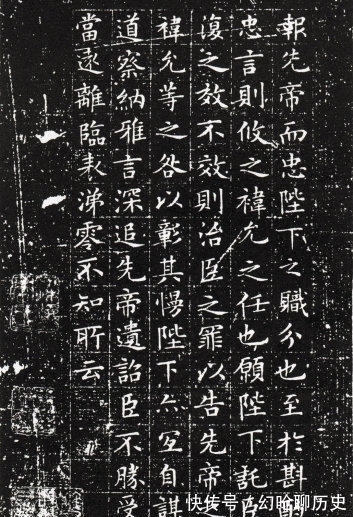 報先帝而忠陛下之職分也至於斟酌
忠言則攸之禕允之任也願陛下託臣
復之效不效則治臣之罪以告先帝之
禕允等之咎以彰其慢陛下亦宜自謀
道察納雅言深追先帝遺詔臣不勝受
當遠離臨表涕零不知所云
快传号/幻晗聊历史